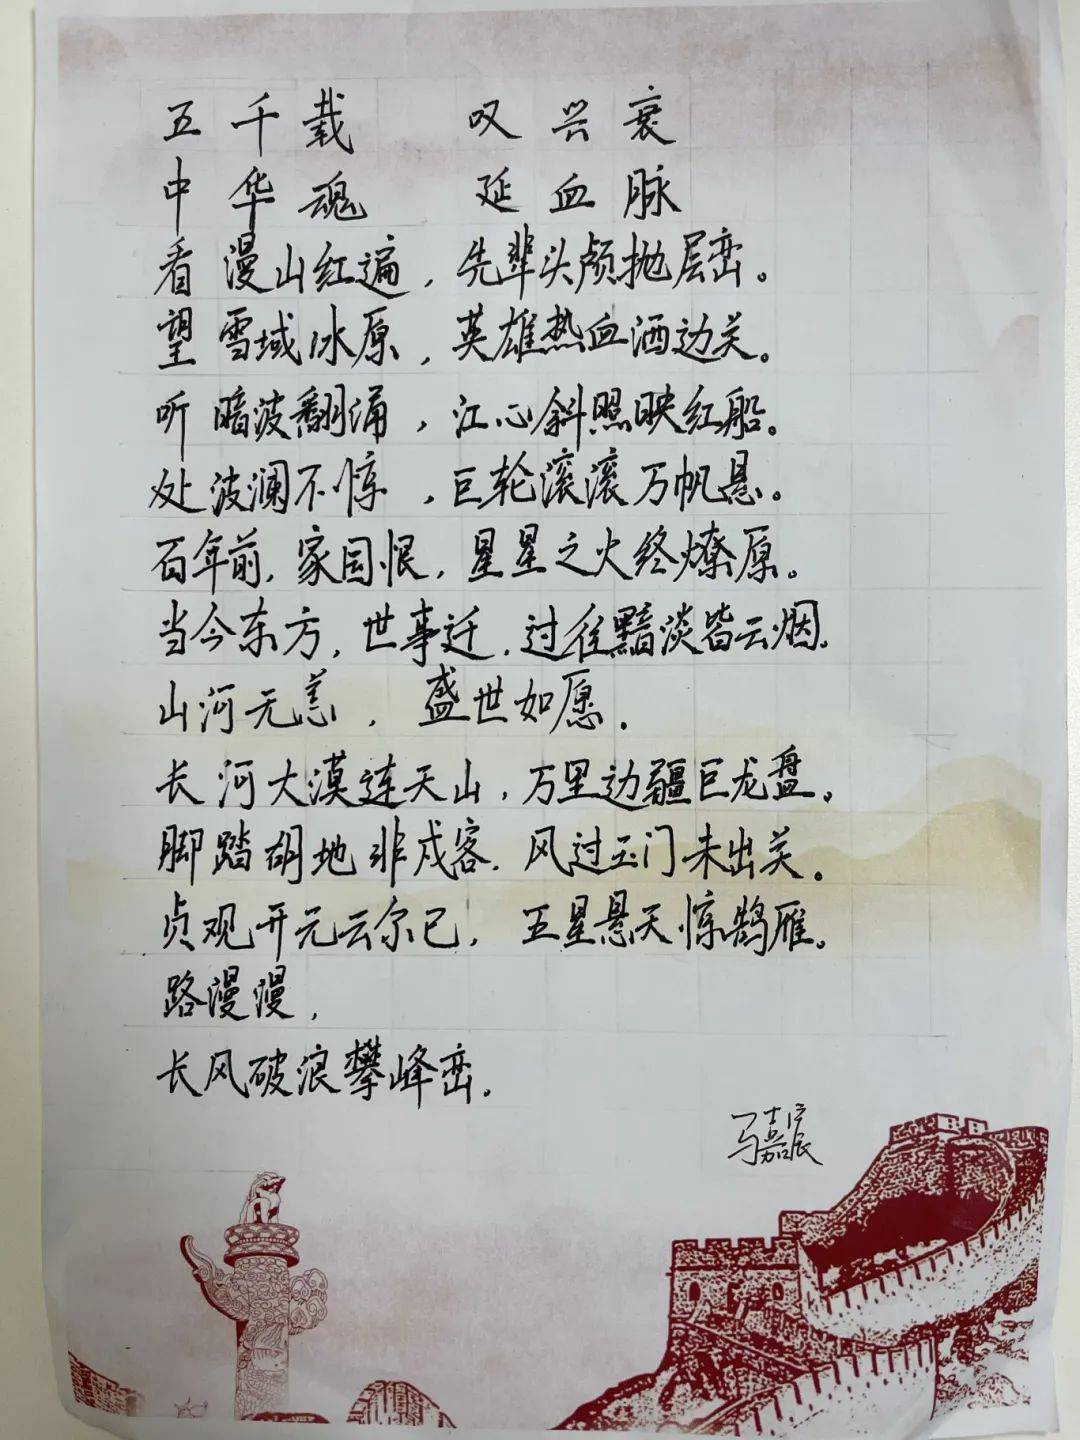 五千载 叹兴衰
中华魂 延血脉
看漫山红遍，先辈头颅抛层峦。
望雪域冰原，英雄热血洒边关。
听暗波翻涌，江心斜照映红船。
处波澜不惊，巨轮滚滚万帆悬。
百年前，家国恨，星星之火终燎原。
当今东方，世事迁，过往黯淡皆云烟。
山河无恙，盛世如愿.
长河大漠连天山，万里边疆巨龙盘。
脚踏胡地非戍客．风过玉门未出关。
贞观开元云尔已，五星悬天惊鹄雁。
路漫漫，
长风破浪攀峰峦.
马嘉宸